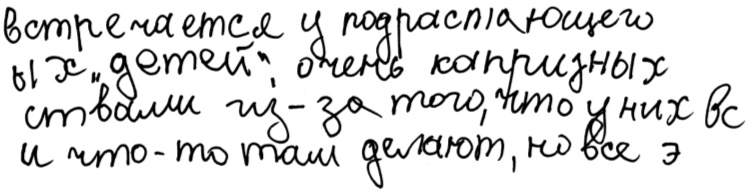 встречается у подрастающего
ых „детей“, очень капризных
ствами из-за того, что у них вс
и что-то там делают, но все э